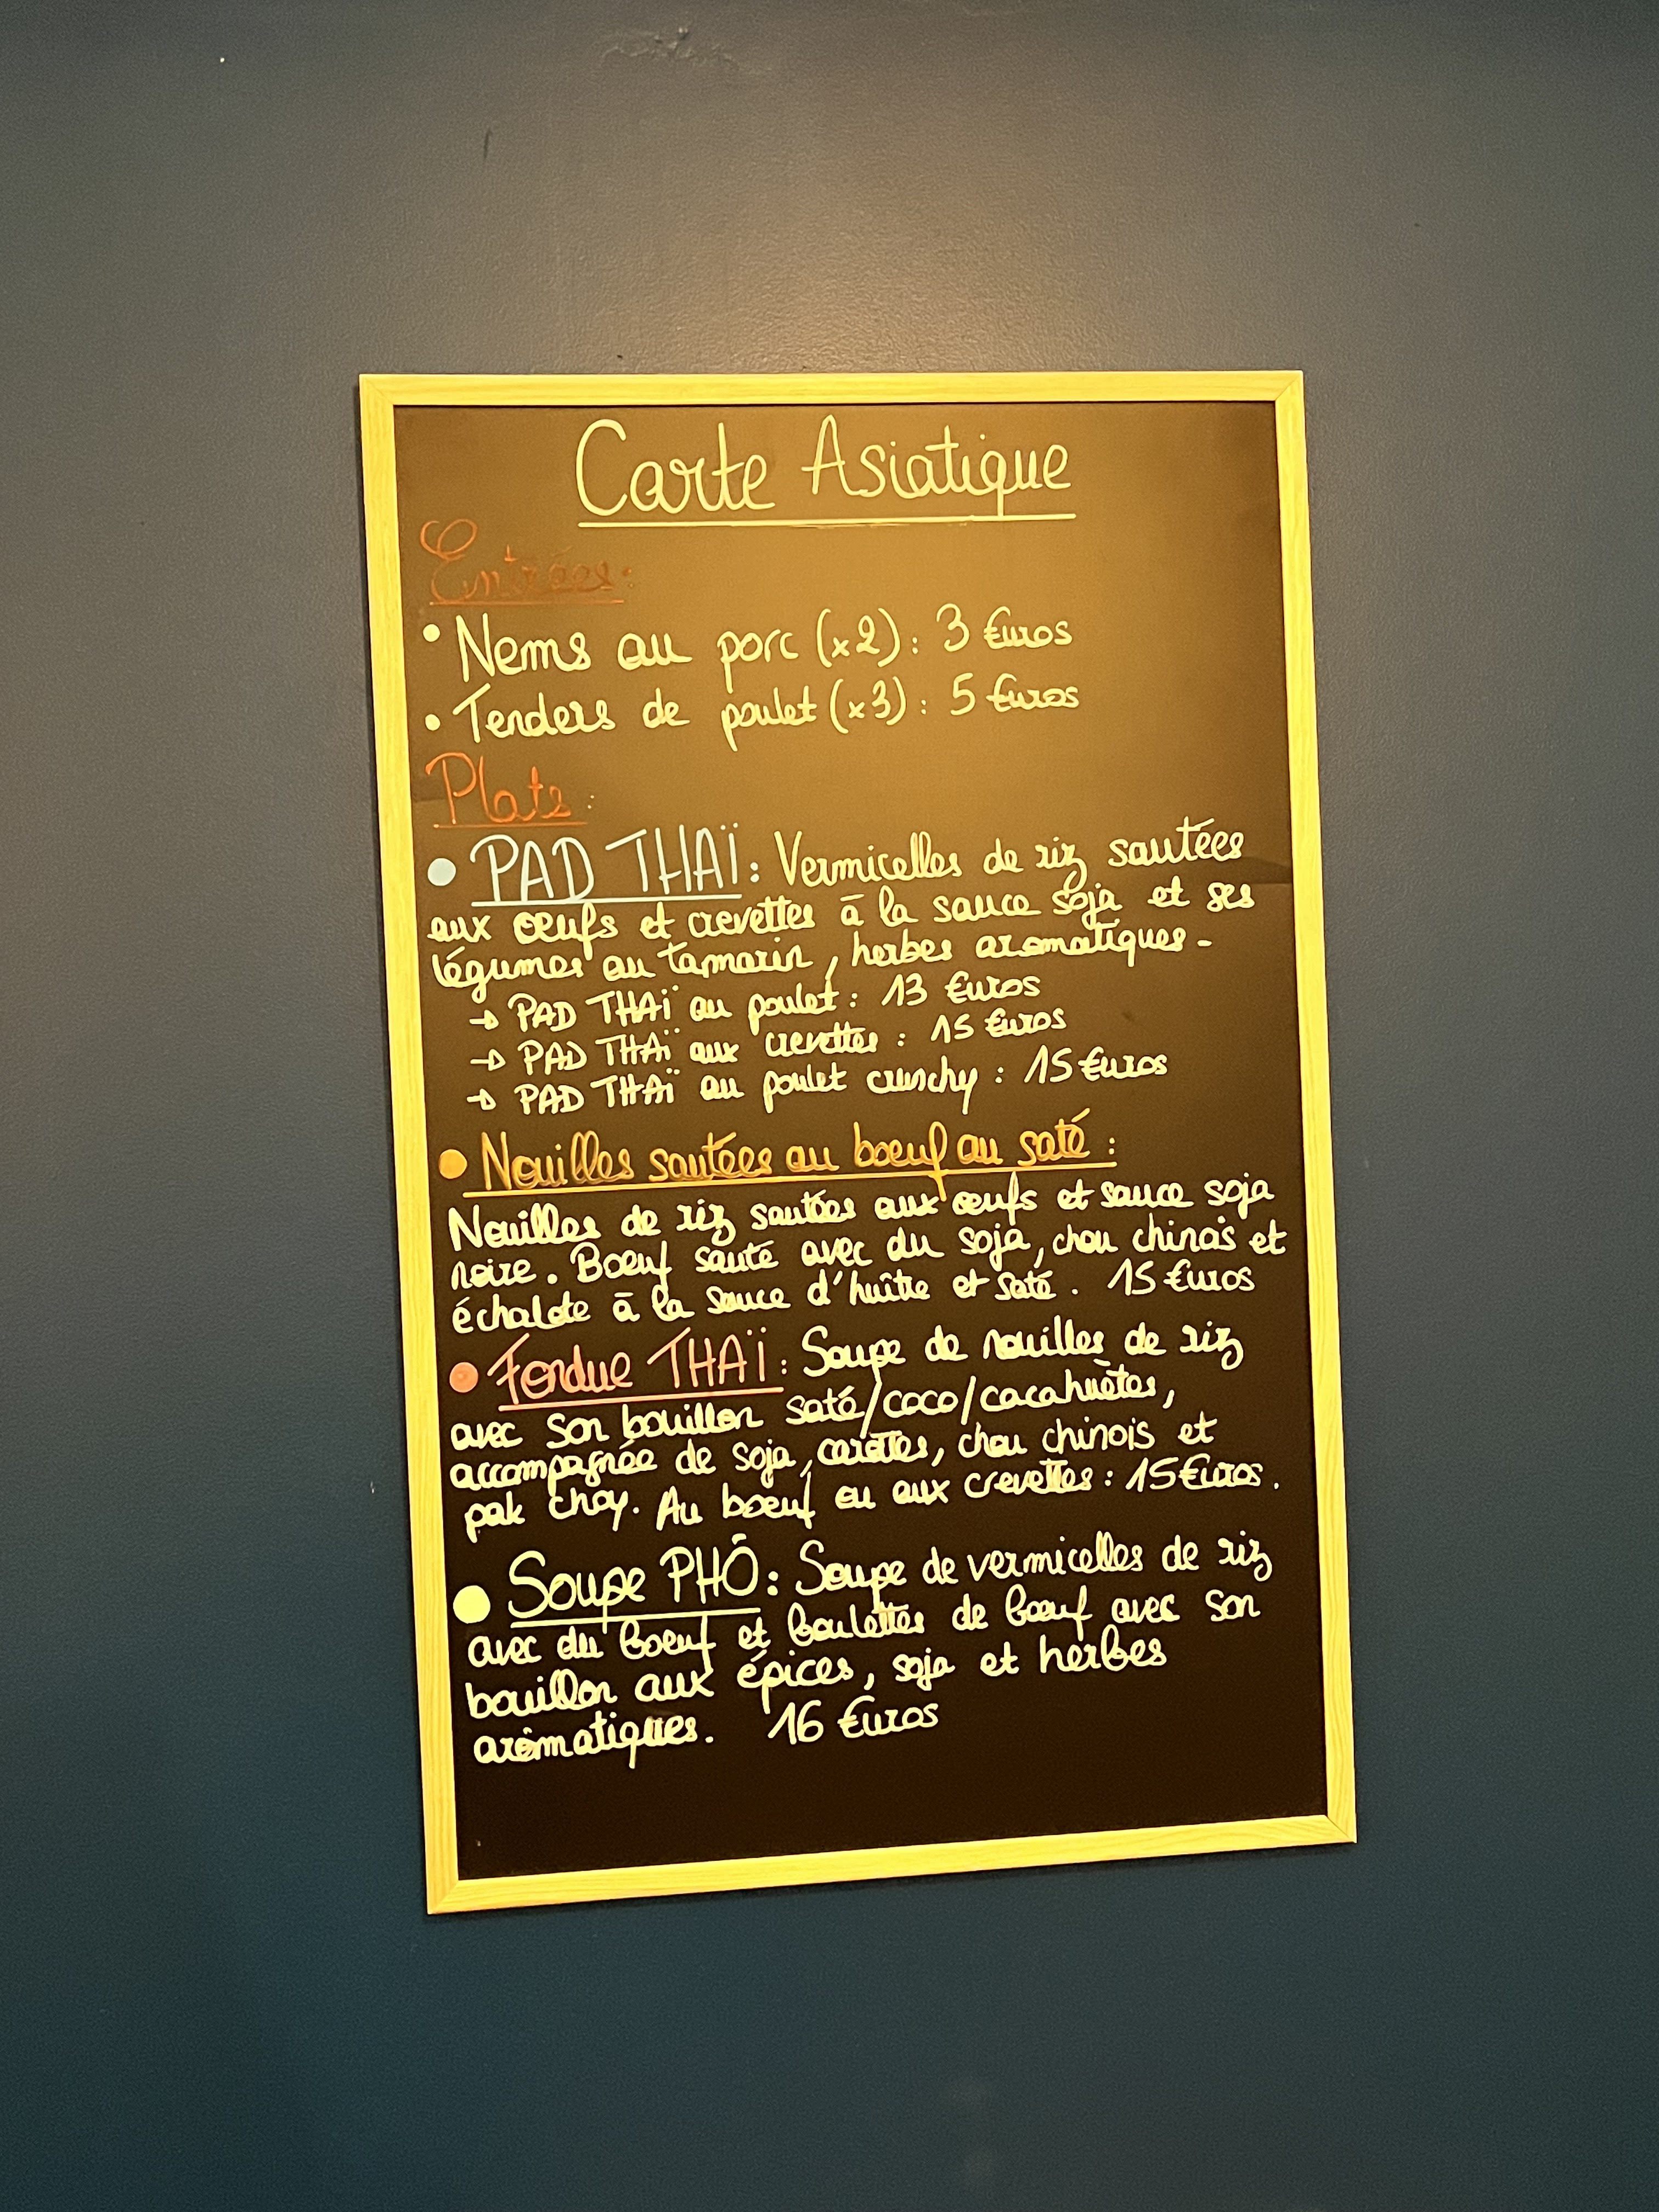 Carte Asiatique
Entrées:
• Nems au porc (x2): 3 €uros
• Tenders de poulet (x3): 5 €uros
Plats:
• PAD THAÏ: Vermicelles de riz sautées
aux œufs et crevettes à la sauce soja et ses
légumes au tamarin, herbes aromatiques.
→ PAD THAÏ au poulet: 13 €uros
→ PAD THAÏ aux crevettes: 15 €uros
→ PAD THAÏ au poulet crunchy: 15 €uros
• Nouilles sautées au boeuf au saté:
Nouilles de riz sautées aux œufs et sauce soja
noire. Boeuf sauté avec du soja, chou chinois et
échalote à la sauce d'huître et saté. 15 €uros
• Fondue THAÏ: Soupe de nouilles de riz
avec son bouillon saté/coco/cacahuètes,
accompagnée de soja, carottes, chou chinois et
pak choy. Au boeuf ou aux crevettes: 15 €uros.
• Soupe PHÔ: Soupe de vermicelles de riz
avec du boeuf et boulettes de boeuf avec son
bouillon aux épices, soja et herbes
aromatiques. 16 €uros